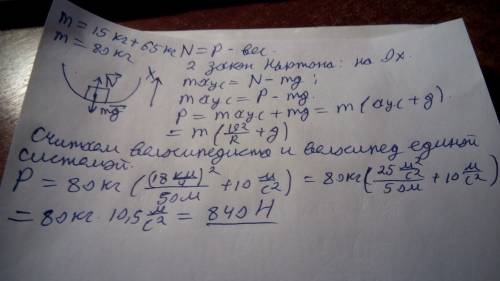 m = 15 кг + 65 кг N = P - вес.
m = 80 кг
2 закон Ньютона: на Ох.
maцс = N - mg;
maцс = P - mg.
P = maцс + mg = m(aцс + g)
= m(υ²/R + g)
X
N
mg
Считаем велосипедиста и велосипед единой
системой.
P = 80 кг ((18 км/ч)²/50м + 10 м/с²) = 80кг(25 м²/с²/50м + 10 м/с²)
= 80 кг · 10,5 м/с² = 840 Н